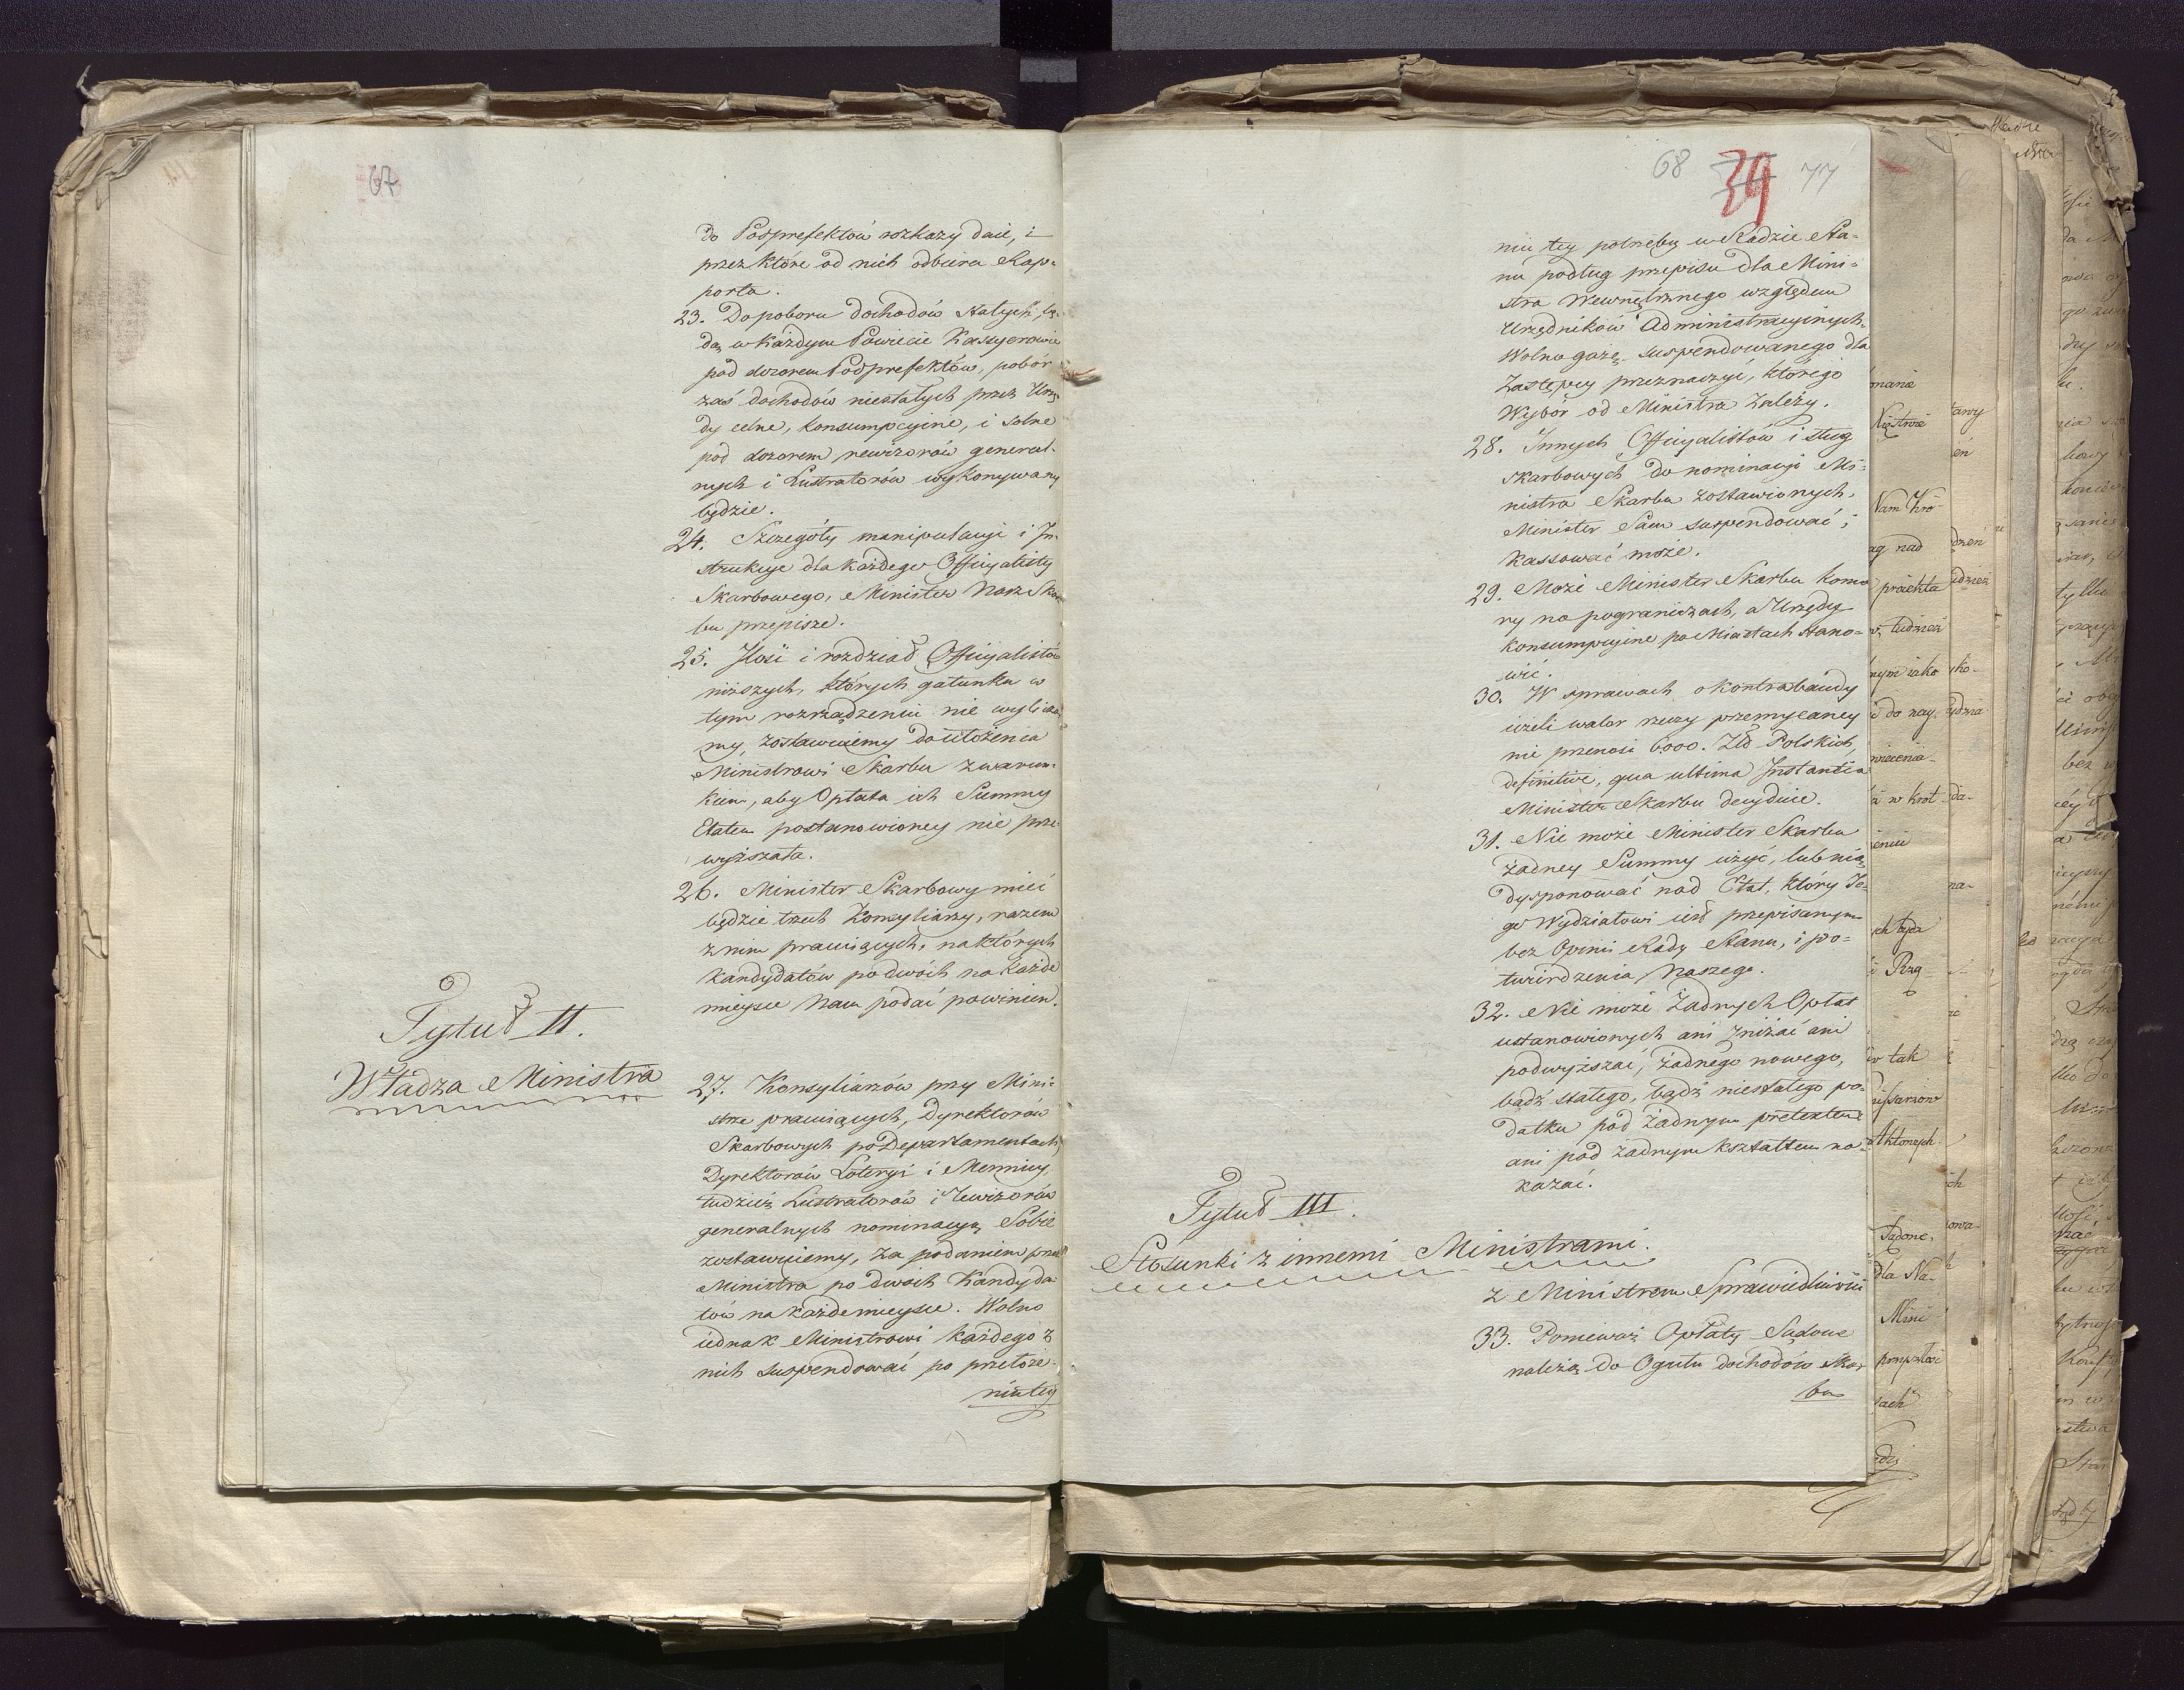 67
do Podprefektów rozkazy daie, i
przez które od nich odbiera Rap-
porta.
23. Do poboru dochodów stałych, bę-
dą w każdym Powiecie Kassyerowie
pod dozorem Podprefektów, pobór
zaś dochodów niestałych przez Urzę
dy celne, konsumpcyine, i solne
pod dozorem rewizorów general-
nych i Lustratorów wykonywany
będzie.
24. Szczegóły manipulacyi i In-
strukcye dla każdego Officyalisty
Skarbowego, Minister Nasz Skar
bu przepisze.
25. Ilość i rozdział Officyalistów
niższych, których gatunku w
tym rozrządzeniu nie wylicza
my, zostawuiemy do ułożenia
Ministrowi Skarbu z warun-
kiem, aby Opłata ich Summy
Etatem postanowioney nie prze-
wyższała.
26. Minister Skarbowy mieć
będzie trzech Konsyliarzy, razem
z nim pracuiących, na których
kandydatów po dwóch na każde
mieysce Nam podać powinien.
Tytuł II.
Władza Ministra
27. Konsyliarzów przy Mini-
strze pracuiących, Dyrektorów
Skarbowych po Departamentach,
Dyrektorów Loteryi i Mennicy,
tudzież Lustratorów i Rewizorów
generalnych nominacyą Sobie
zostawuiemy, za podaniem przez
Ministra po dwóch Kandyda-
tów na każde mieysce. Wolno
iednak Ministrowi każdego z
nich suspendować po przełoże-
niu tey
68 39 77
niu tey potrzeby w Radzie Sta-
nu podług przepisu dla Mini-
stra Wewnętrznego względem
Urzędników Administracyinych.
Wolno gażę suspendowanego dla
Zastępcy przeznaczyć, którego
Wybór od Ministra Zależy.
28. Innych Officyalistów i sług
skarbowych do nominacyi Mi-
nistra Skarbu zostawionych,
Minister Sam suspendować i
kassować może.
29. Może Minister Skarbu komo
ry na pograniczach, a Urzędy
konsumpcyine po Miastach stano-
wić.
30. W sprawach o kontrabandy
ieżeli walor rzeczy przemycaney
nie przenosi 6000. Zł Polskich,
definitive, qua ultima Instantia
Minister Skarbu decyduie.
31. Nie może Minister Skarbu
żadney Summy użyć, lub nią
dysponować nad Etat, który Je-
go Wydziałowi iest przepisanym
bez Opinii Rady Stanu, i po-
twierdzenia Naszego.
32. Nie może Żadnych Opłat
ustanowionych ani zniżać ani
podwyższać, żadnego nowego,
bądź stałego, bądź niestałego po-
datku pod żadnym pretextem
ani pod żadnym kształtem na-
kazać.
Tytuł III.
Stosunki z innemi Ministrami.
z Ministrem Sprawiedliwości
33. Ponieważ Opłaty Sądowe
należą do Ogułu dochodów Skar
bu